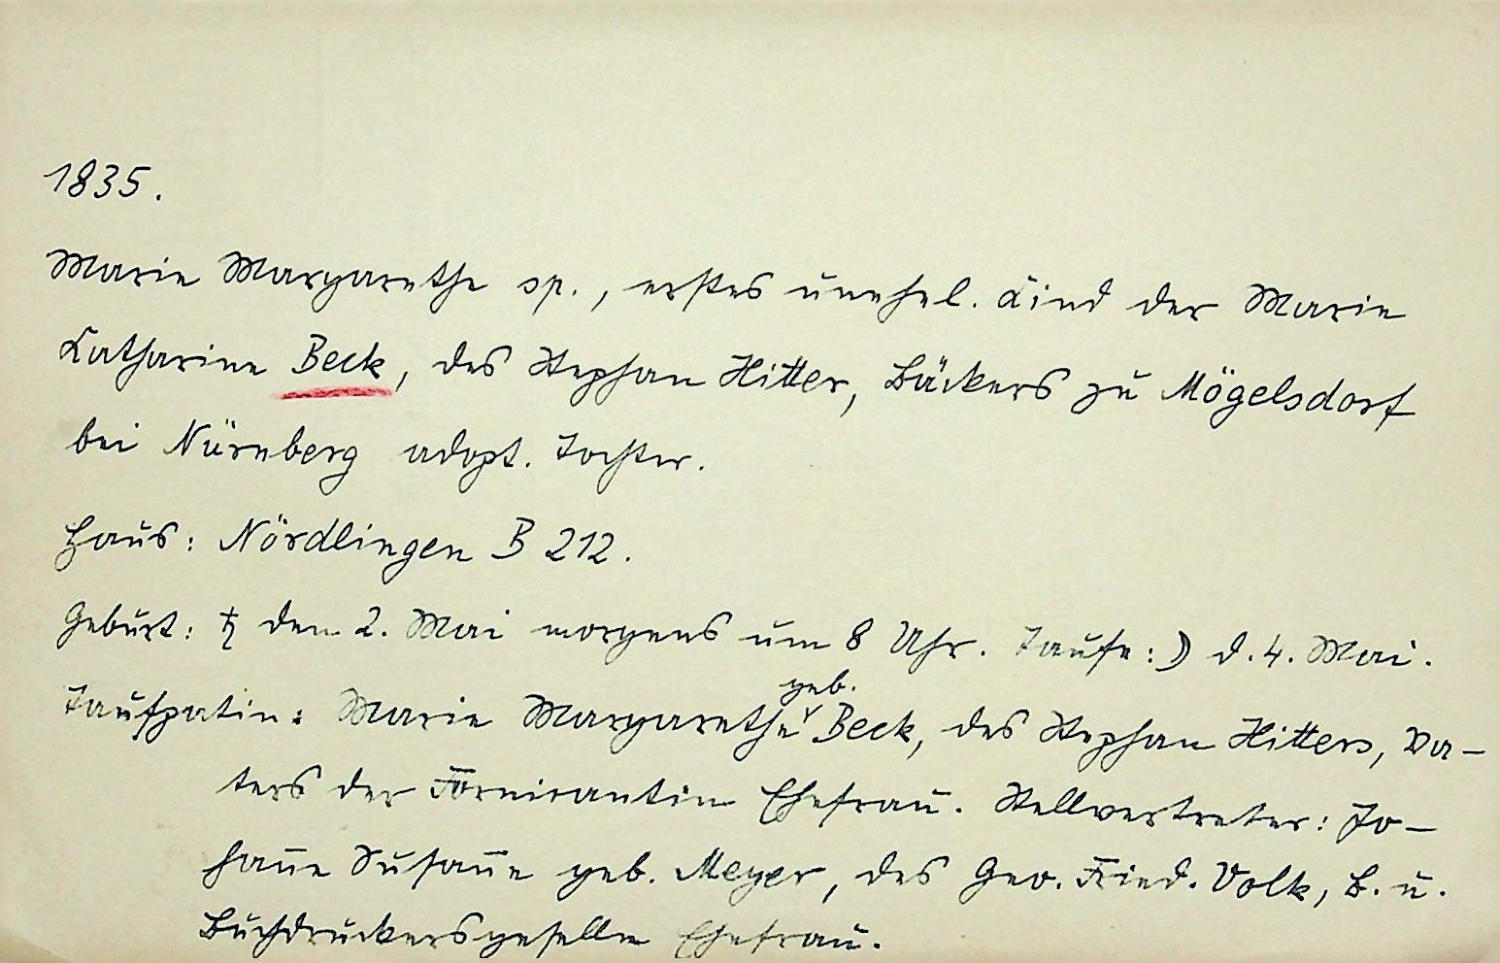 1835.
Marie Margarethe sp., erstes unehel. Kind der Marie
Katharine Beck, des Stephan Hitter, Bäckers zu Mögelsdorf
bei Nürnberg adopt. Tochter.
Haus: Nördlingen B 212.
Geburt: ♄ den 2. Mai morgens um 8 Uhr. Taufe: ☽ d. 4. Mai.
geb.
Taufpatin: Marie Margarethe Beck, des Stephan Hitters, Va-
ters der Fornicantin Ehefrau. Stellvertreter: Jo-
han̄e Susan̄e geb. Meyer, des Geo. Fried. Volk, B. u.
Buchdruckersgesellen Ehefrau.